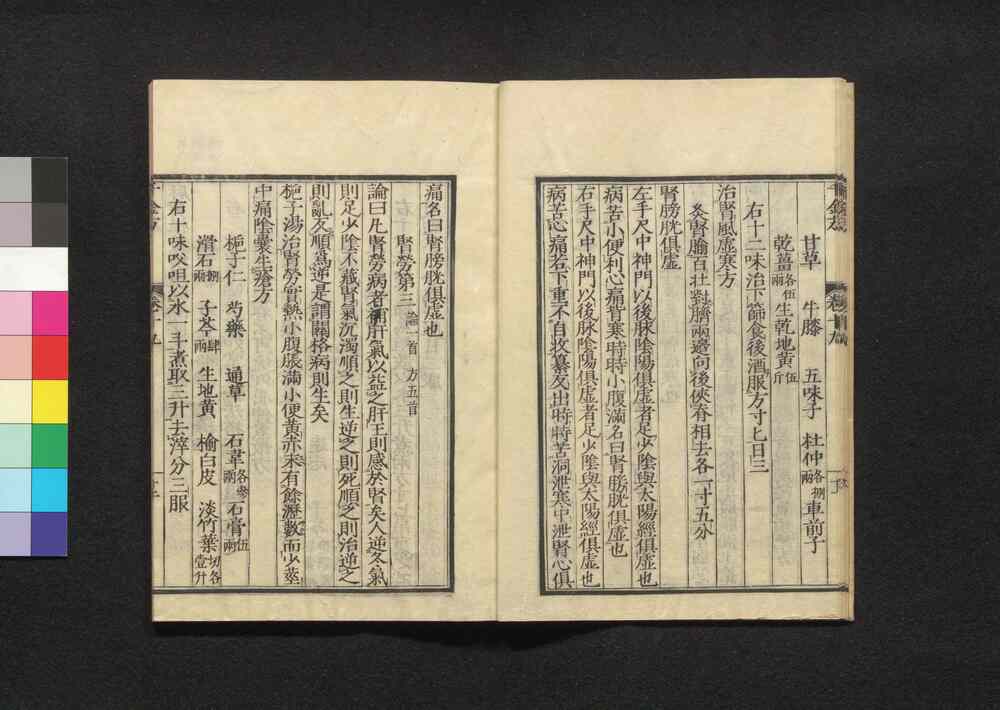 甘草　牛膝　五味子　杜仲各捌兩　車前子
乾薑各伍兩　生乾地黃伍斤
右十二味治下篩食後酒服方寸匕日三
治腎風虛寒方
灸腎腧百壯對臍兩邊向後俠脊相去各一寸五分
腎膀胱俱虛
左手尺中神門以後脉陰陽俱虛者足少陰與太陽經俱虛也
病苦小便利心痛背寒時時小腹滿名曰腎膀胱俱虛也
右手尺中神門以後脉陰陽俱虛者足少陰與太陽經俱虛也
病苦心痛若下重不自收篡反出時時苦洞泄寒中泄腎心俱
痛名曰腎膀胱俱虛也
腎勞第三論一首　方五首
論曰凡腎勞病者補肝氣以益之肝王則感於腎矣人逆冬氣
則足少陰不藏腎氣沉濁順之則生逆之則死順之則治逆之
則亂反順爲逆是謂關格病則生矣
梔子湯治腎勞實熱小腹脹滿小便黃赤未有餘瀝數而少莖
中痛陰囊生瘡方
梔子仁　芍藥　通草　石葦各叄兩　石膏伍兩
滑石捌兩　子芩肆兩　生地黃　榆白皮　淡竹葉切各壹升
右十味㕮咀以水一斗煮取三升去滓分三服